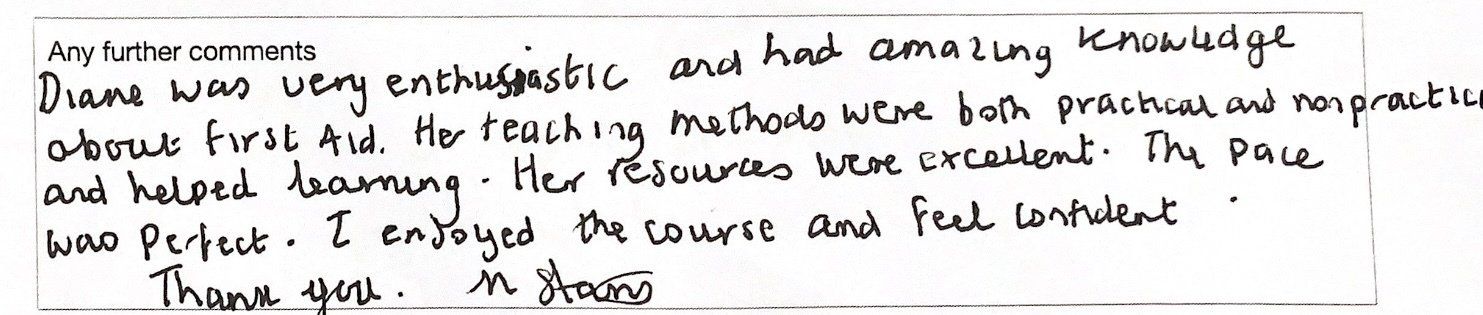 Any further comments
Diane was very enthusiastic and had amazing knowledge
about First Aid. Her teaching methods were both practical and non practic
and helped learning. Her resources were excellent. The pace
was perfect. I enjoyed the course and feel confident.
Thank you. N